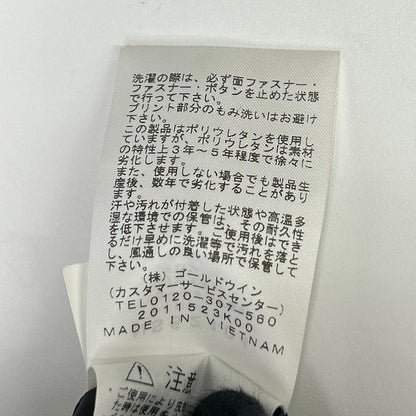 洗濯の際は、必ず面ファスナー・
ファスナー・ボタンを止めた状態
で行って下さい。
プリント部分のもみ洗いはお避け
下さい。
この製品はポリウレタンを使用し
ていますが、ポリウレタンは素材
の特性上3年～5年程度で徐々に
劣化します。
また、使用しない場合でも製品生
産後、数年で劣化することがあり
ます。
汗や汚れが付着した状態や高温多
湿な環境での保管は、その耐久性
を低下させます。ご使用後はでき
るだけ早めに洗濯等で汚れを落と
し、風通しの良い場所で保管して
下さい。
(株) ゴールドウイン
(カスタマーサービスセンター)
TEL0120-307-560
2011523K00
MADE IN VIETNAM
注意
・ご使用により